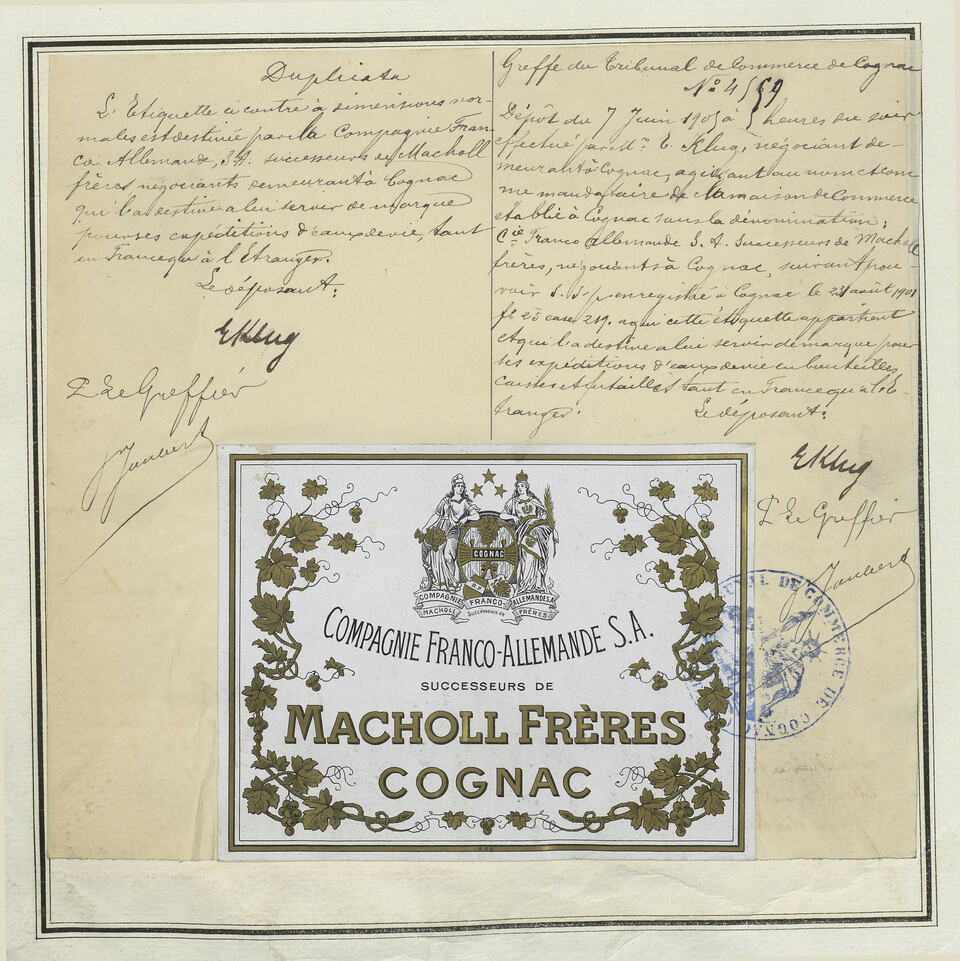 Duplicata
L'Etiquette ci contre à dimensions nor-
males est destinée par la Compagnie Fran-
co Allemande, S.A. successeurs de Macholl
frères négociants demeurant à Cognac
qui l'a destine a lui servir de marque
pour ses expéditions d'eaux de vie, tant
en France qu'à l'Etranger.
Le déposant:
EKlug
P Le Greffier
Joubert
Greffe du Tribunal de Commerce de Cognac
No 4559
Dépôt du 7 Juin 1905 à 5 heures du soir
effectué par Mr. E. Klug, négociant de-
meurant à Cognac, agissant au nom et com
me mandataire de la maison de Commerce
établie à Cognac sous la dénomination:
Cie Franco allemande S. A. Successeurs de Macholl
frères, négociants à Cognac, suivant pou-
voir s.s.p. enregistré à Cognac le 23 août 1901
fo 25 case 219. a qui cette étiquette appartient
et qui l'a destine a lui servir de marque pour
ses expéditions d'eaux de vie en bouteilles,
caisses et futailles tant en France qu'a l'E-
tranger.
Le déposant:
EKlug
P Le Greffier
Joubert
COGNAC
COMPAGNIE FRANCO-ALLEMANDE S.A.
MACHOLL Successeurs de FRÈRES
COMPAGNIE FRANCO-ALLEMANDE S.A.
SUCCESSEURS DE
MACHOLL FRÈRES
COGNAC
TRIBUNAL DE COMMERCE DE COGNAC